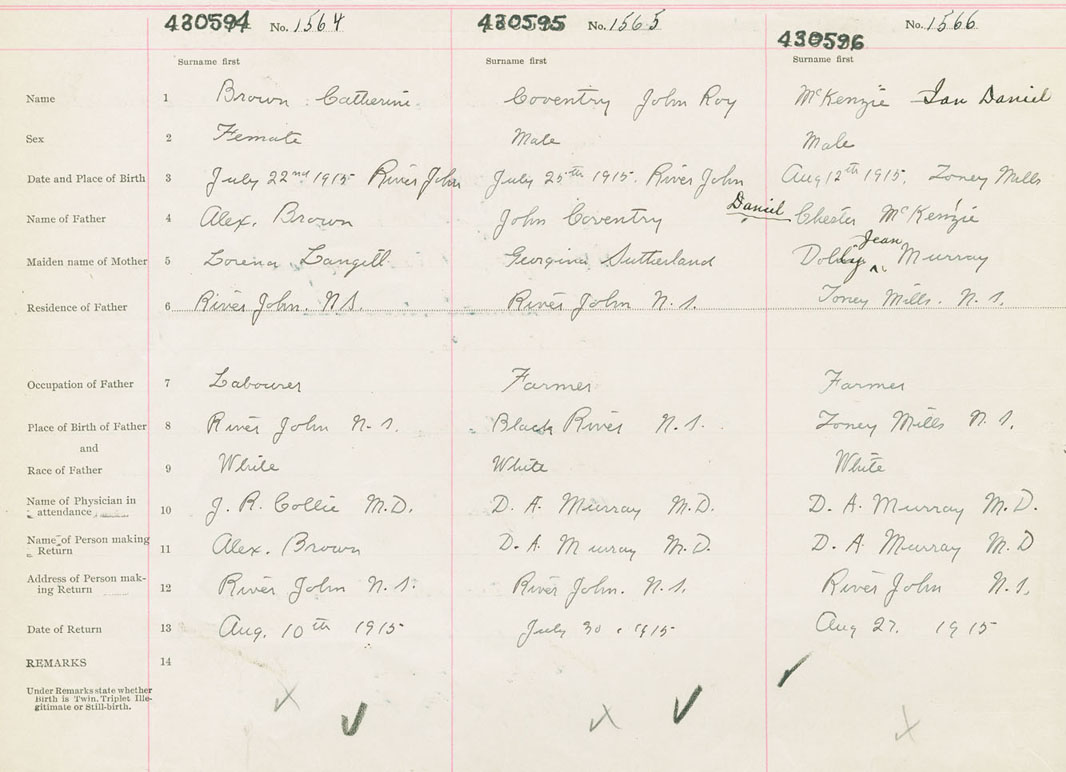 430594 No. 1564 430595 No. 1565 430596 No. 1566
Surname first Surname first Surname first
Name 1 Brown Catherine. Coventry John Roy McKenzie Ian Daniel
Sex 2 Female Male Male
Date and Place of Birth 3 July 22nd 1915 River John July 25th 1915. River John Aug 12th 1915. Toney Mills
Name of Father 4 Alex. Brown John Coventry Daniel Chester McKenzie
Maiden name of Mother 5 Lorena Langill Georgina Sutherland Jean Murray
Residence of Father 6 River John. N.S. River John N.S. Toney Mills. N.S.
Occupation of Father 7 Labourer Farmer Farmer
Place of Birth of Father 8 River John N.S. Black River N.S. Toney Mills N.S.
and
Race of Father 9 White White White
Name of Physician in
attendance 10 J. R. Collie M.D. D. A. Murray M.D. D. A. Murray M.D.
Name of Person making
Return 11 Alex. Brown D. A. Murray M.D. D. A. Murray M.D
Address of Person mak-
ing Return 12 River John N.S. River John. N.S. River John N.S.
Date of Return 13 Aug. 10th 1915 July 30. 1915 Aug 27. 1915
REMARKS 14
Under Remarks state whether
Birth is Twin, Triplet Ille-
gitimate or Still-birth.